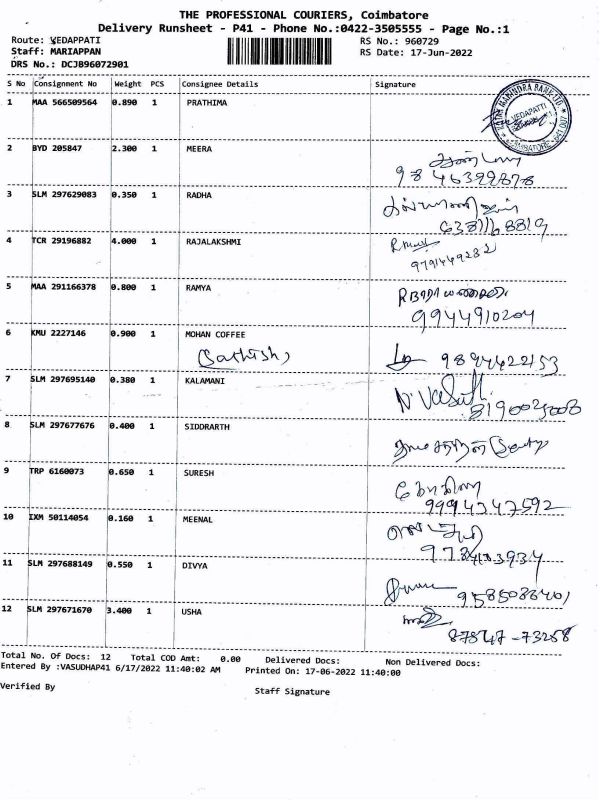 THE PROFESSIONAL COURIERS, Coimbatore
Delivery Runsheet - P41 - Phone No.:0422-3505555 - Page No.:1
Route: VEDAPPATI RS No.: 960729
Staff: MARIAPPAN RS Date: 17-Jun-2022
DRS No.: DCJB96072901
S No Consignment No Weight PCS Consignee Details Signature
1 MAA 566509564 0.890 1 PRATHIMA
2 BYD 205847 2.300 1 MEERA
3 SLM 297629083 0.350 1 RADHA
4 TCR 29196882 4.000 1 RAJALAKSHMI
9791449282
5 MAA 291166378 0.800 1 RAMYA
9944910204
6 KMU 2227146 0.900 1 MOHAN COFFEE
(Sathish) 9894422153
7 SLM 297695140 0.380 1 KALAMANI
8 SLM 297677676 0.400 1 SIDDRARTH
9 TRP 6160073 0.650 1 SURESH
9994347592
10 IXM 50114054 0.160 1 MEENAL
11 SLM 297688149 0.550 1 DIVYA
12 SLM 297671670 3.400 1 USHA
87847-73258
Total No. Of Docs: 12 Total COD Amt: 0.00 Delivered Docs: Non Delivered Docs:
Entered By :VASUDHAP41 6/17/2022 11:40:02 AM Printed On: 17-06-2022 11:40:00
Verified By Staff Signature